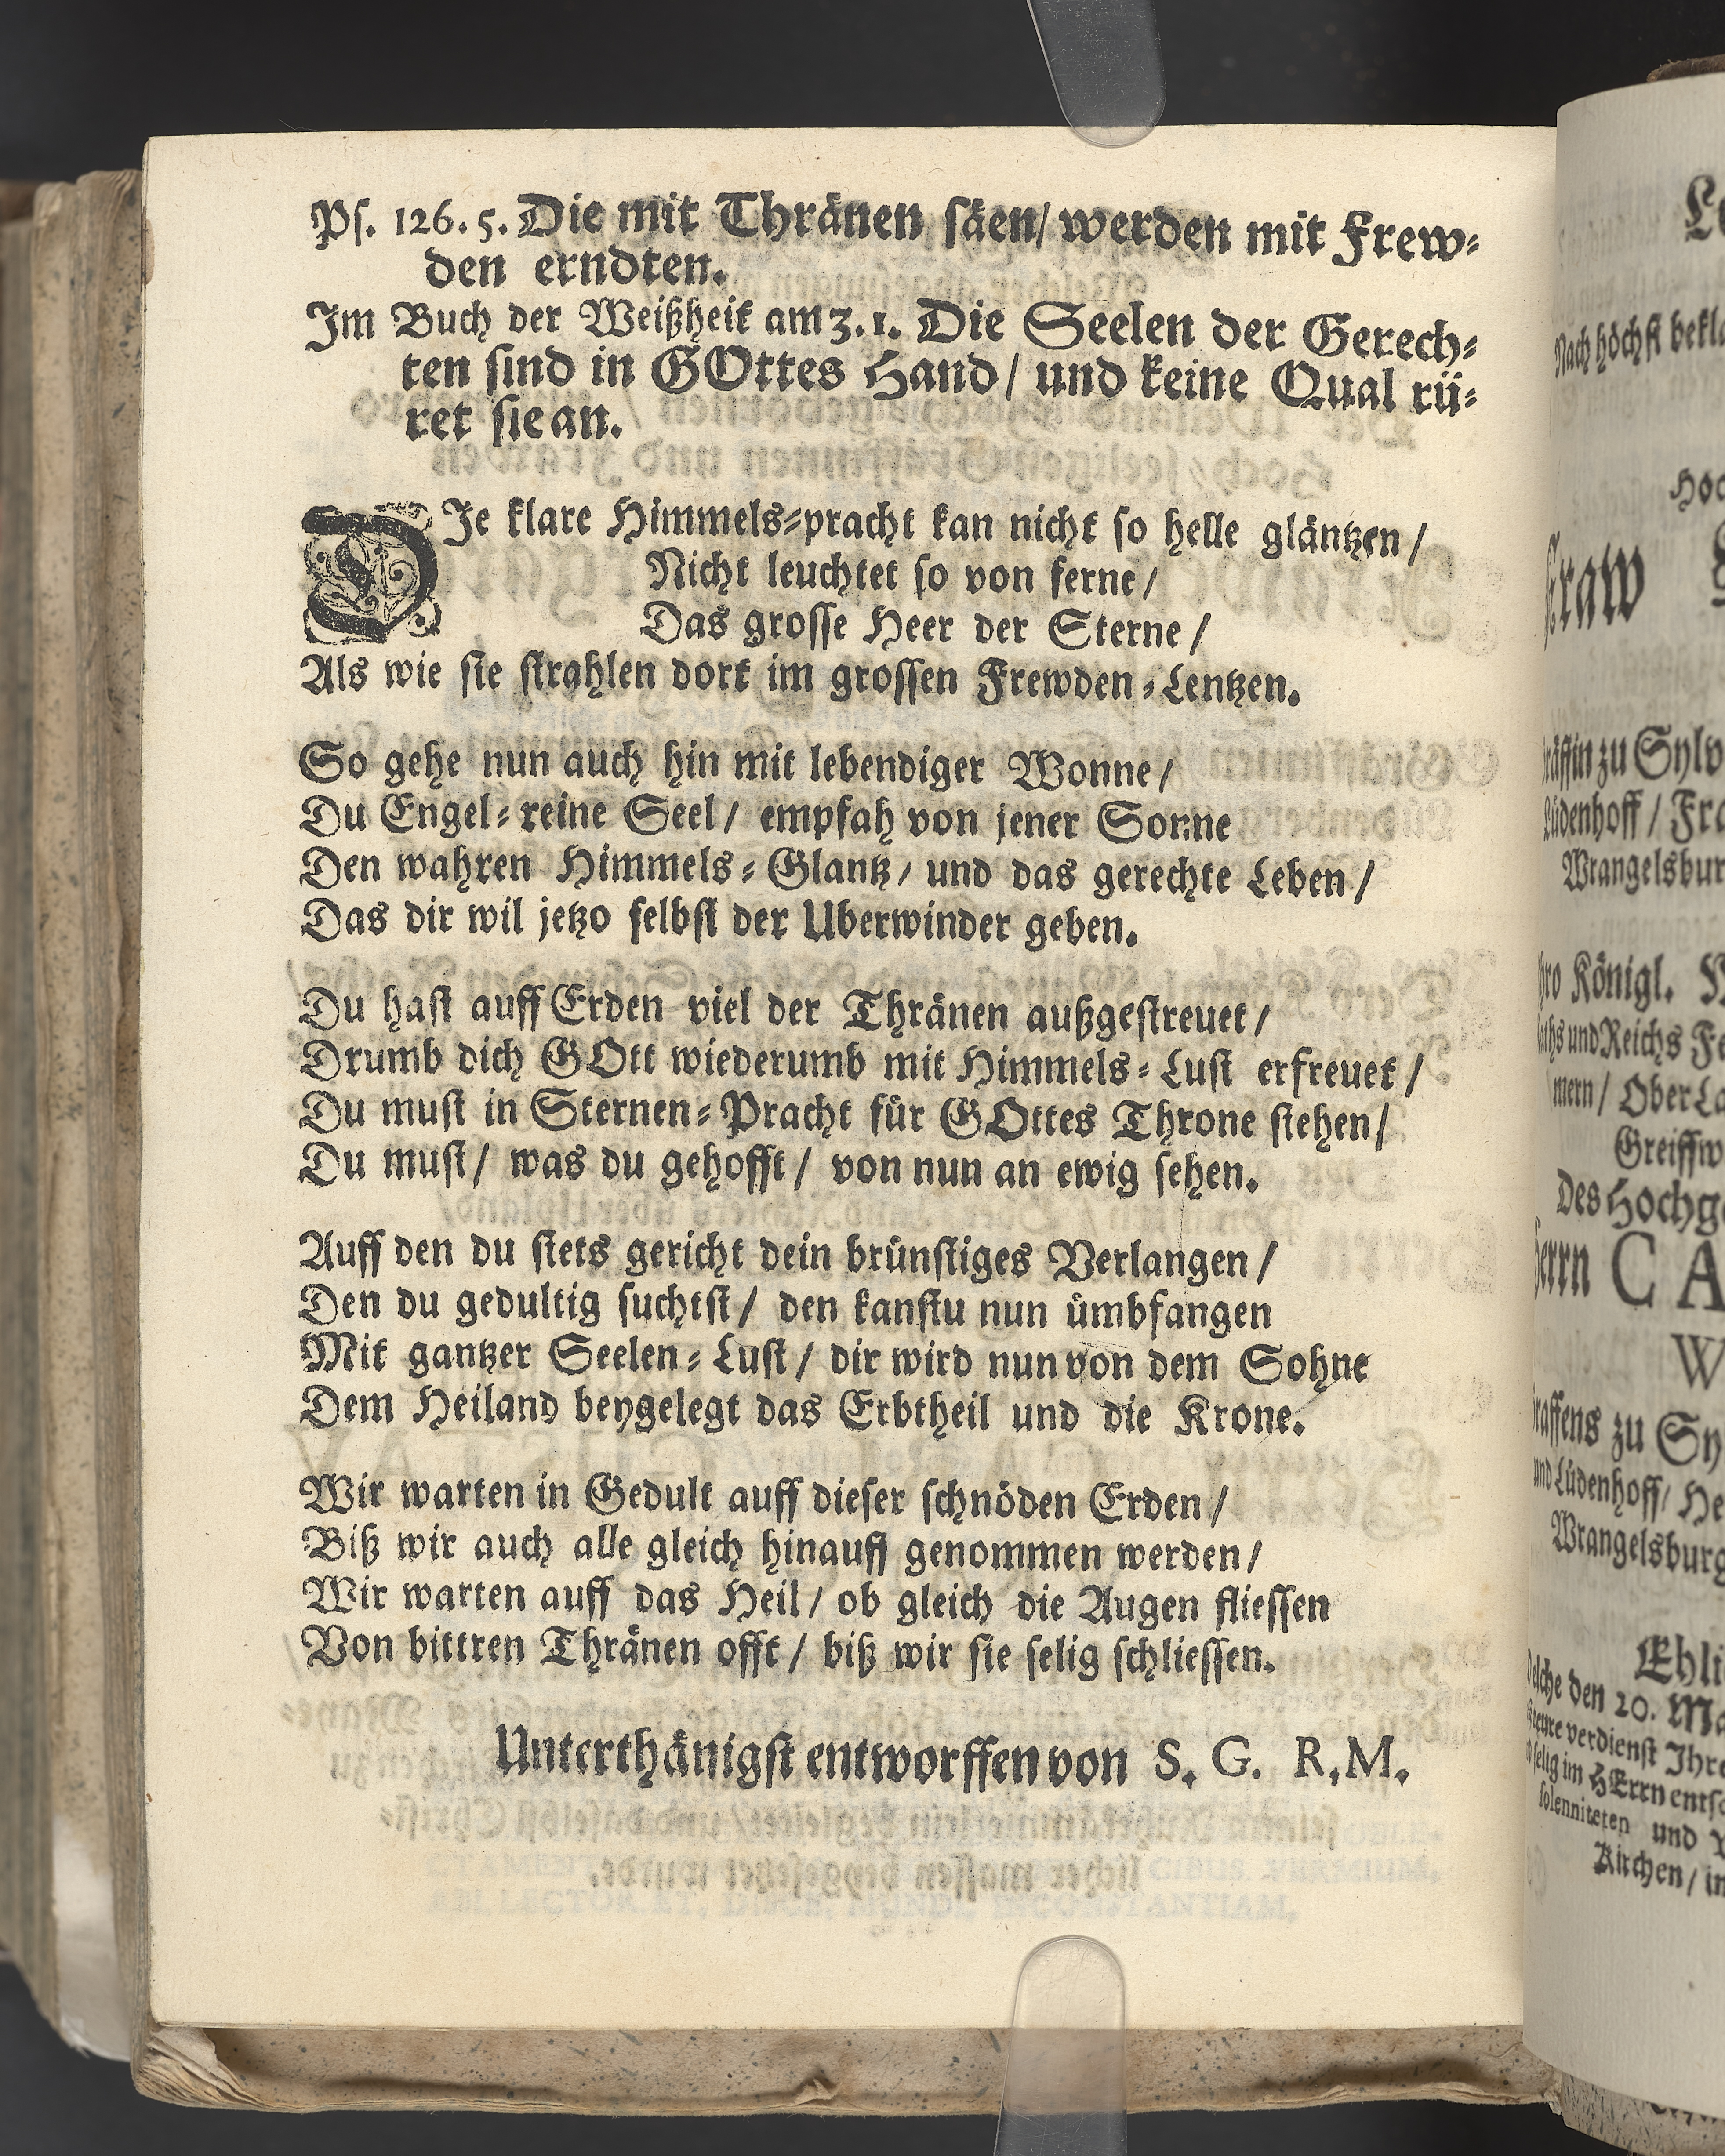 Ps. 126. 5. Die mit Thränen säen/ werden mit Frew-
den erndten.
Im Buch der Weißheit am 3. 1. Die Seelen der Gerech-
ten sind in GOttes Hand/ und keine Qual rü-
ret sie an.
DIe klare Himmels-pracht kan nicht so helle gläntzen/
Nicht leuchtet so von ferne/
Das grosse Heer der Sterne/
Als wie sie strahlen dort im grossen Frewden-Lentzen.
So gehe nun auch hin mit lebendiger Wonne/
Du Engel-reine Seel/ empfah von jener Sonne
Den wahren Himmels-Glantz/ und das gerechte Leben/
Das dir wil jetzo selbst der Uberwinder geben.
Du hast auff Erden viel der Thränen außgestreuet/
Drumb dich GOtt wiederumb mit Himmels-Lust erfreuet/
Du must in Sternen-Pracht für GOttes Throne stehen/
Du must/ was du gehofft/ von nun an ewig sehen.
Auff den du stets gericht dein brünstiges Verlangen/
Den du gedultig suchtst/ den kanstu nun ümbfangen
Mit gantzer Seelen-Lust/ dir wird nun von dem Sohne
Dem Heiland beygelegt das Erbtheil und die Krone.
Wir warten in Gedult auff dieser schnöden Erden/
Biß wir auch alle gleich hinauff genommen werden/
Wir warten auff das Heil/ ob gleich die Augen fliessen
Von bittren Thränen offt/ biß wir sie selig schliessen.
Unterthänigst entworffen von S. G. R. M.
Nach höchst
zu
Lüdenhoff /
Königl.
und Reichs
Ober
Des
C A
zu
und Lüdenhoff/
den 20.
verdienst
selig im HErrn
und
Kirchen/